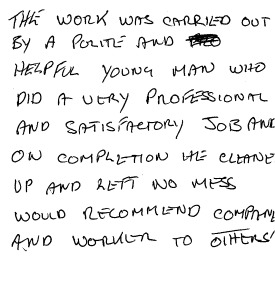 THE WORK WAS CARRIED OUT
BY A POLITE AND
HELPFUL YOUNG MAN WHO
DID A VERY PROFESSIONAL
AND SATISFACTORY JOB AN
ON COMPLETION HE CLEANE
UP AND LEFT NO MESS
WOULD RECOMMEND COMPAN
AND WORKER TO OTHERS